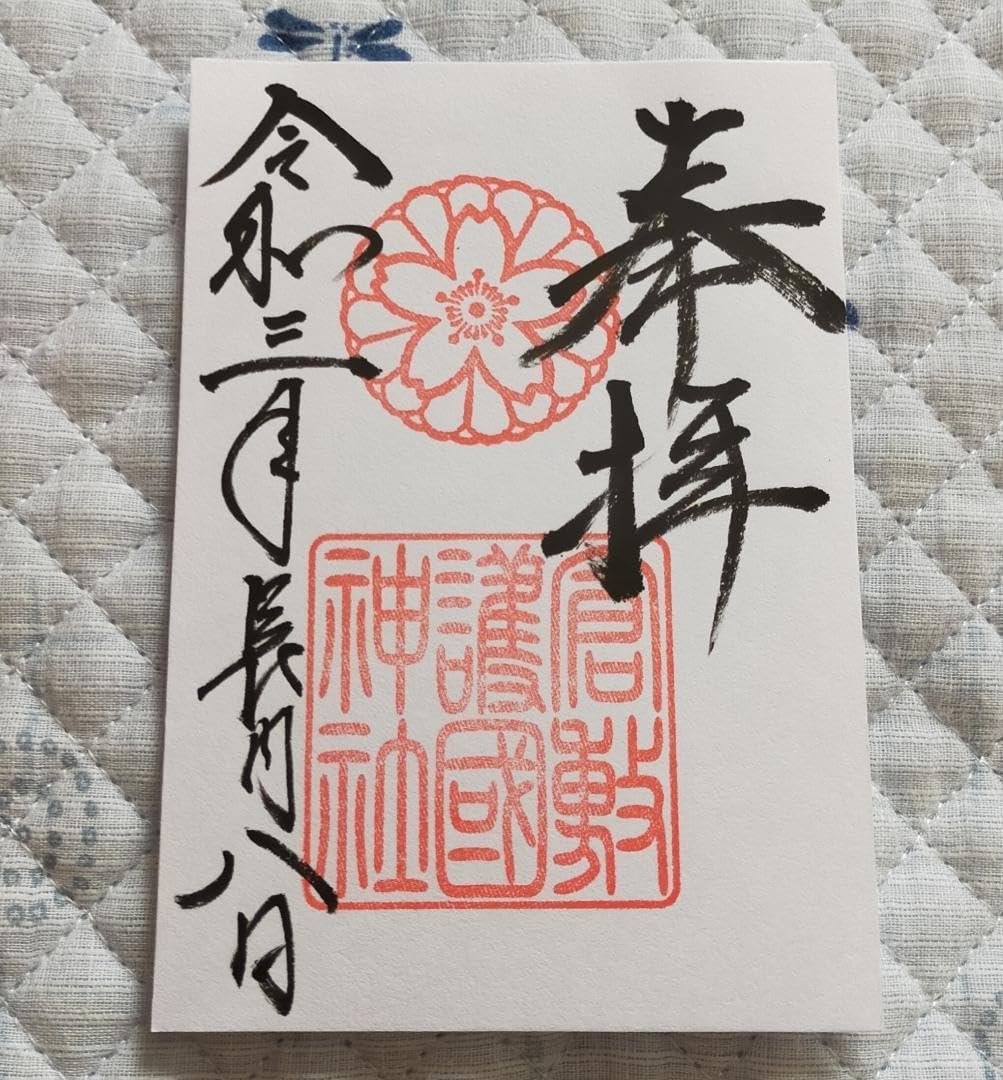 奉拝
倉敷
護國
神社
令和三年長月八日